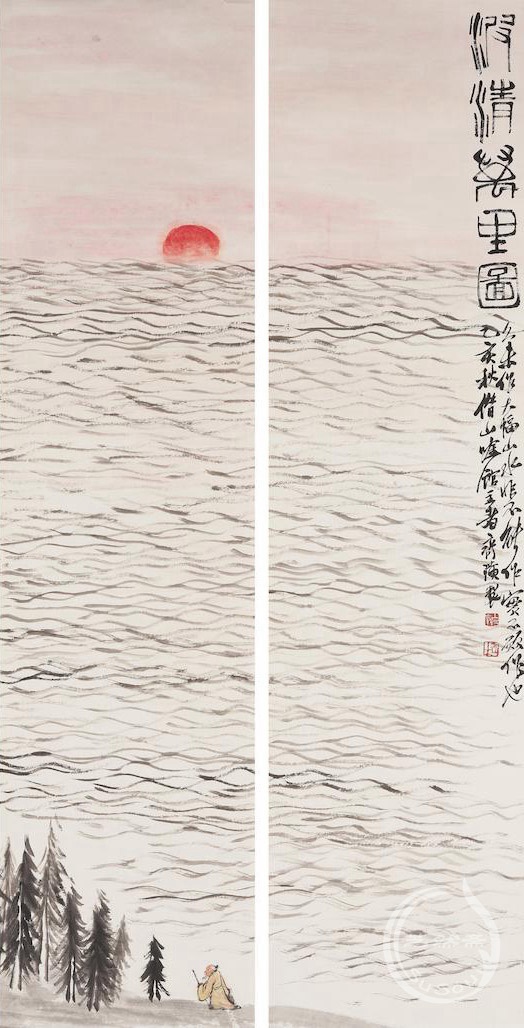 波清萬里圖
久未作大幅山水非不能作實不敢作也
乙亥秋借山吟館主者齊璜